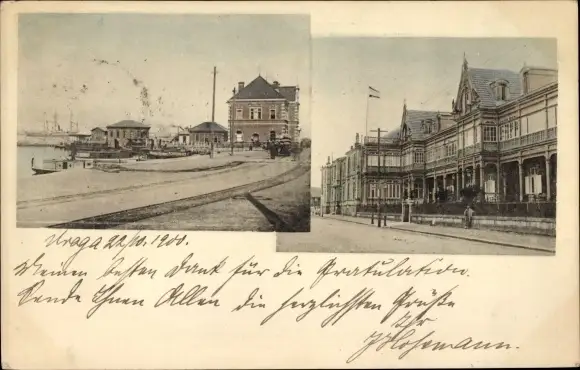 Uraga 22/10. 1900.
Meinen besten Dank für die Gratulation.
Sende Ihnen Allen die herzlichsten Grüße
Ihr